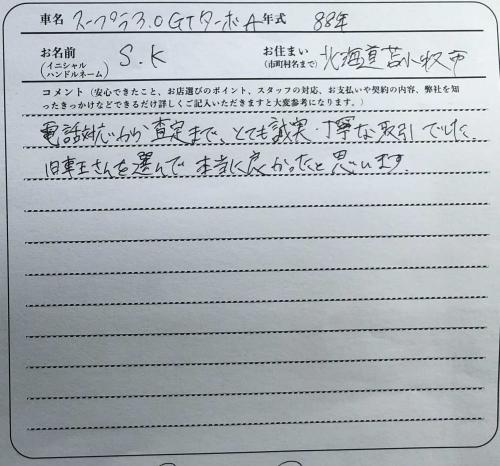 車名 スープラ3.0GTターボA 年式 88年
お名前 (イニシャル ハンドルネーム) S.K お住まい (市町村名まで) 北海道苫小牧市
コメント（安心できたこと、お店選びのポイント、スタッフの対応、お支払いや契約の内容、弊社を知
ったきっかけなどできるだけ詳しくご記入いただきますと大変参考になります。）
電話対応から査定まで、とても誠実・丁寧な取引でした。
旧車王さんを選んで本当に良かったと思います。